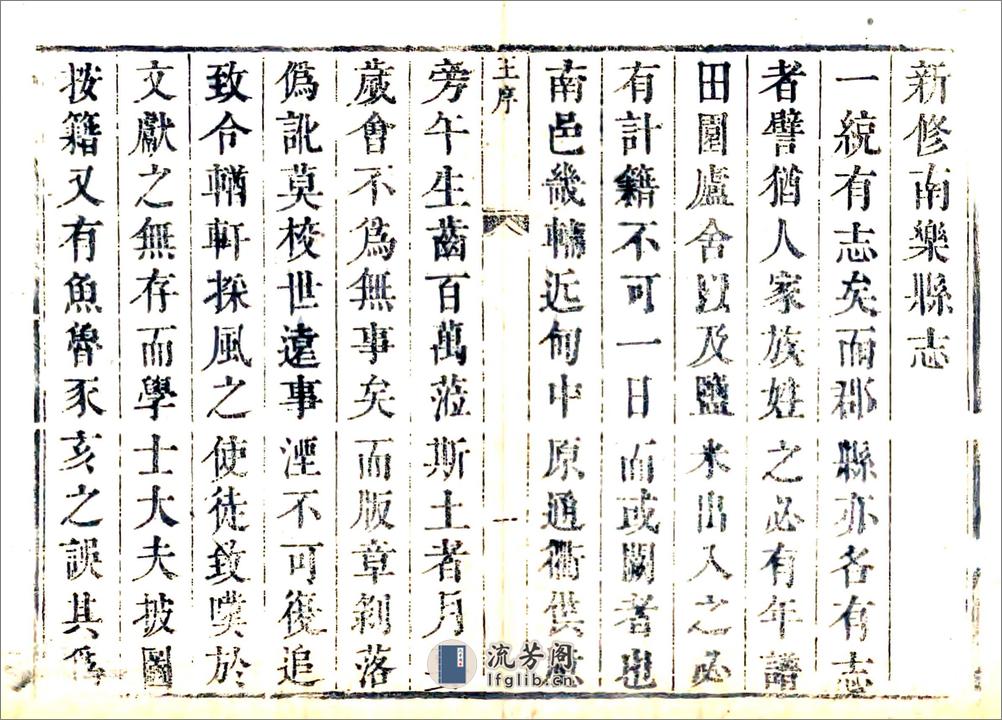 新修南樂縣志
一統有志矣而郡縣亦各有志
者譬猶人家族姓之必有年譜
田園廬舍以及鹽米出入之必
有計籍不可一日而或闕者也
南邑畿輔近甸中原通衢供
王序
一
旁午生齒百萬蒞斯土者月
歲會不爲無事矣而版章剝落
僞訛莫校世遠事湮不可復追
致令輶軒採風之使徒致嘆於
文獻之無存而學士大夫披圖
按籍又有魚魯豕亥之誤其爲
流芳阁
lfglib.cn